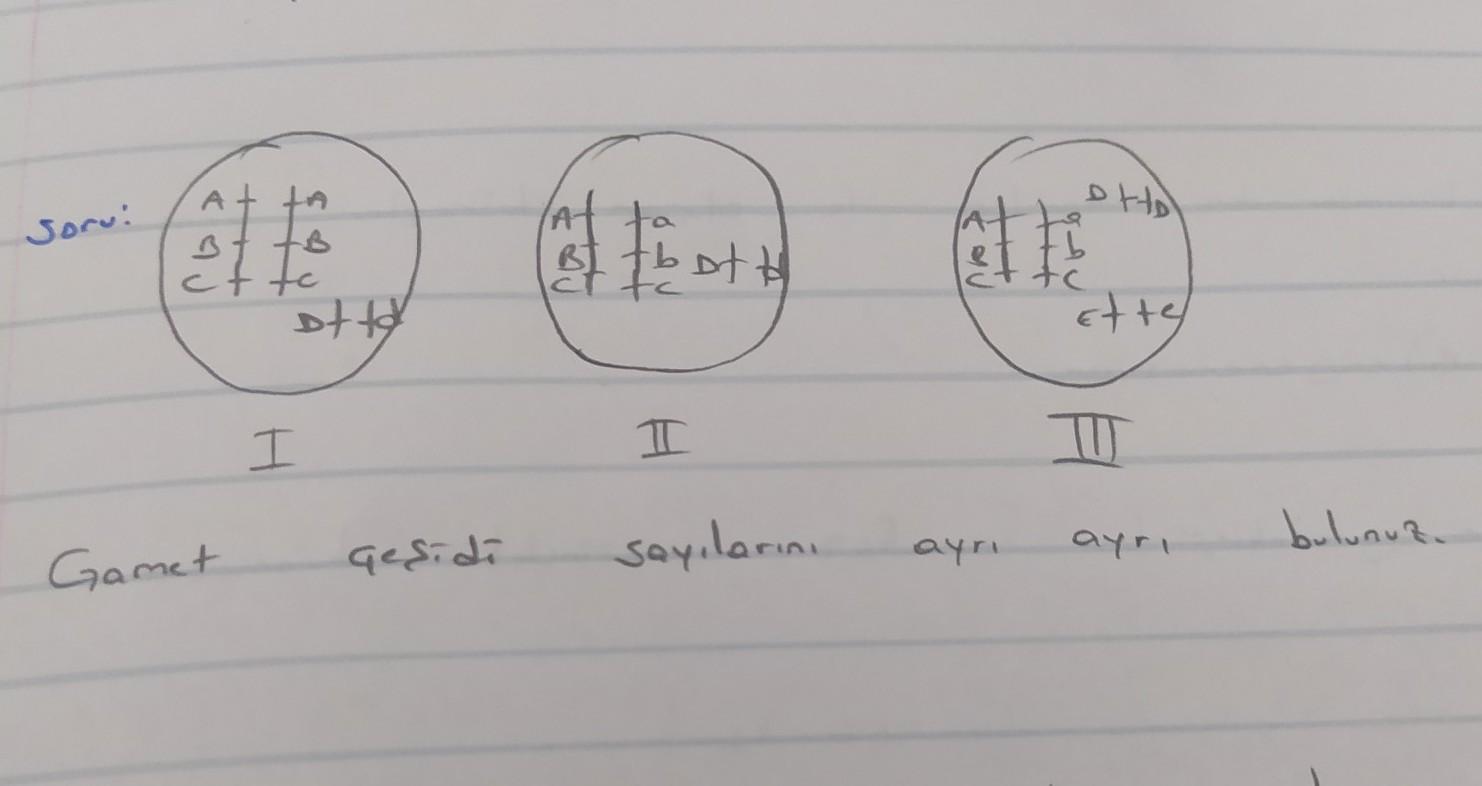 Soru:
A A a D D
B B A a A b
C c B b D d B c
D d C c E e
I II III
Gamet çeşidi sayılarını ayrı ayrı bulunuz.